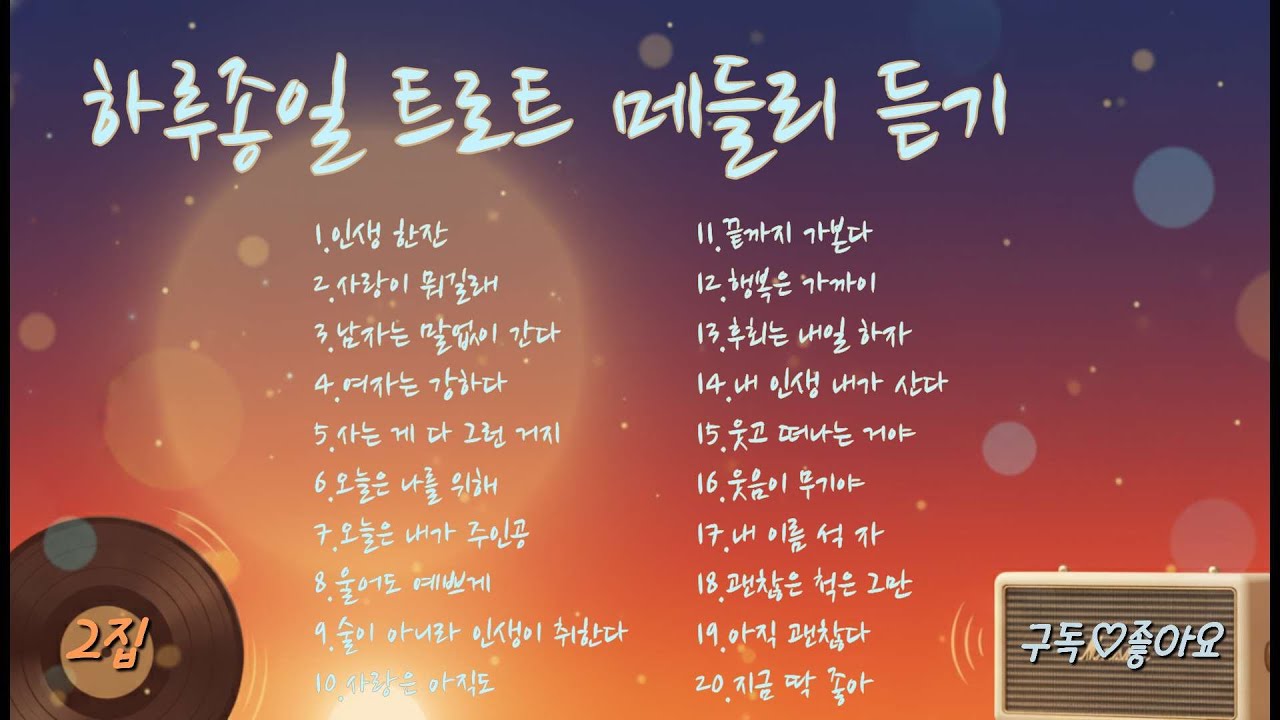 하루종일 트로트 메들리 듣기
1.인생 한잔
2.사랑이 뭐길래
3.남자는 말없이 간다
4.여자는 강하다
5.사는 게 다 그런 거지
6.오늘은 나를 위해
7.오늘은 내가 주인공
8.울어도 예쁘게
9.술이 아니라 인생이 취한다
10.사랑은 아직도
11.끝까지 가본다
12.행복은 가까이
13.후회는 내일 하자
14.내 인생 내가 산다
15.웃고 떠나는 거야
16.웃음이 무기야
17.내 이름 석 자
18.괜찮은 척은 그만
19.아직 괜찮다
20.지금 딱 좋아
2집
구독♡좋아요